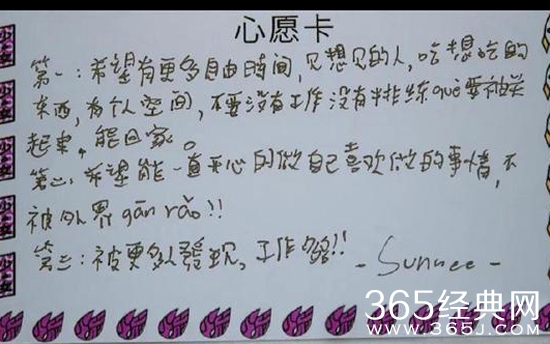 心愿卡
第一：希望有更多自由時间，见想见的人，吃想吃的
东西，有个人空间，不要没有工作没有排练 què 要被关
起来，能回家。
第二：希望能一直开心的做自己喜欢做的事情，不
被外界 gān rǎo!!
第三：被更多人發现，工作够!!
- Sunnee -
365经典网
www.365J.com